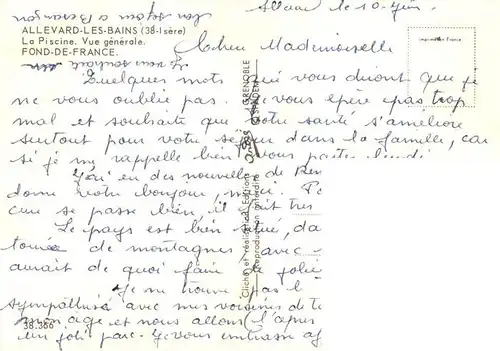 Allevard le 10 Juin
ALLEVARD-LES-BAINS (38-Isère)
La Piscine. Vue générale.
FOND-DE-FRANCE.
Imprimé en France
Chère Mademoiselle
Quelques mots qui vous diront que je
ne vous oublie pas. Je vous espère pas trop
mal et souhaite que votre santé s'améliore
surtout pour votre séjour dans la famille, car
si je me rappelle bien vous partez lundi
J'ai eu des nouvelles de
donné votre bonjour, merci.
cure se passe bien, il fait très
Le pays est bien situé, da
de montagnes avec
aurait de quoi faire de jolie
Je ne trouve pas l
sympathisé avec mes voisines de ta
mon age et nous allons l'après
un joli parc. Je vous embrasse af
Je vous souhaite un
bon séjour à Besançon
38.366
GRENOBLE
Cliché et réalisation Editions
Reproduction interdite